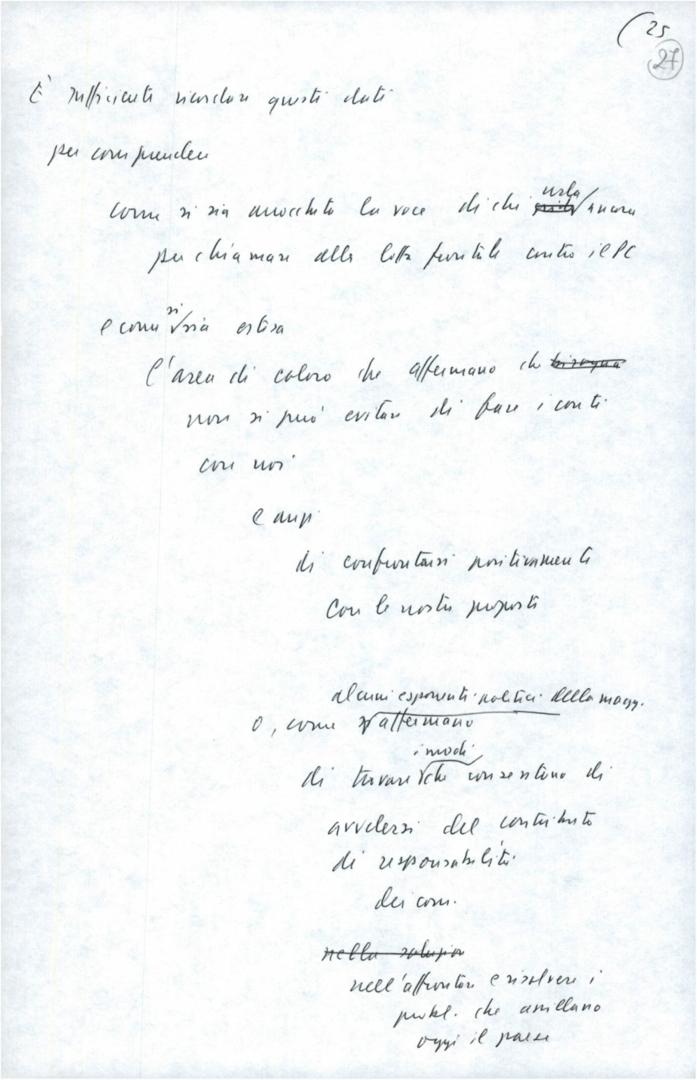 (25
27
È sufficiente ricordare questi dati
per comprendere
come si sia arrochita la voce di chi urla ancora
per chiamare alla lotta frontale contro il PC
e come si sia estesa
l'area di coloro che affermano che bisogna
non si può evitare di fare i conti
con noi
e anzi
di confrontarsi positivamente
con le nostre proposte
alcuni esponenti politici della magg.
o, come affermano
i modi
di trovare che consentano di
avvalersi del contributo
di responsabilità
dei com.
nella soluzion
nell'affrontare e risolvere i
probl. che assillano
oggi il paese